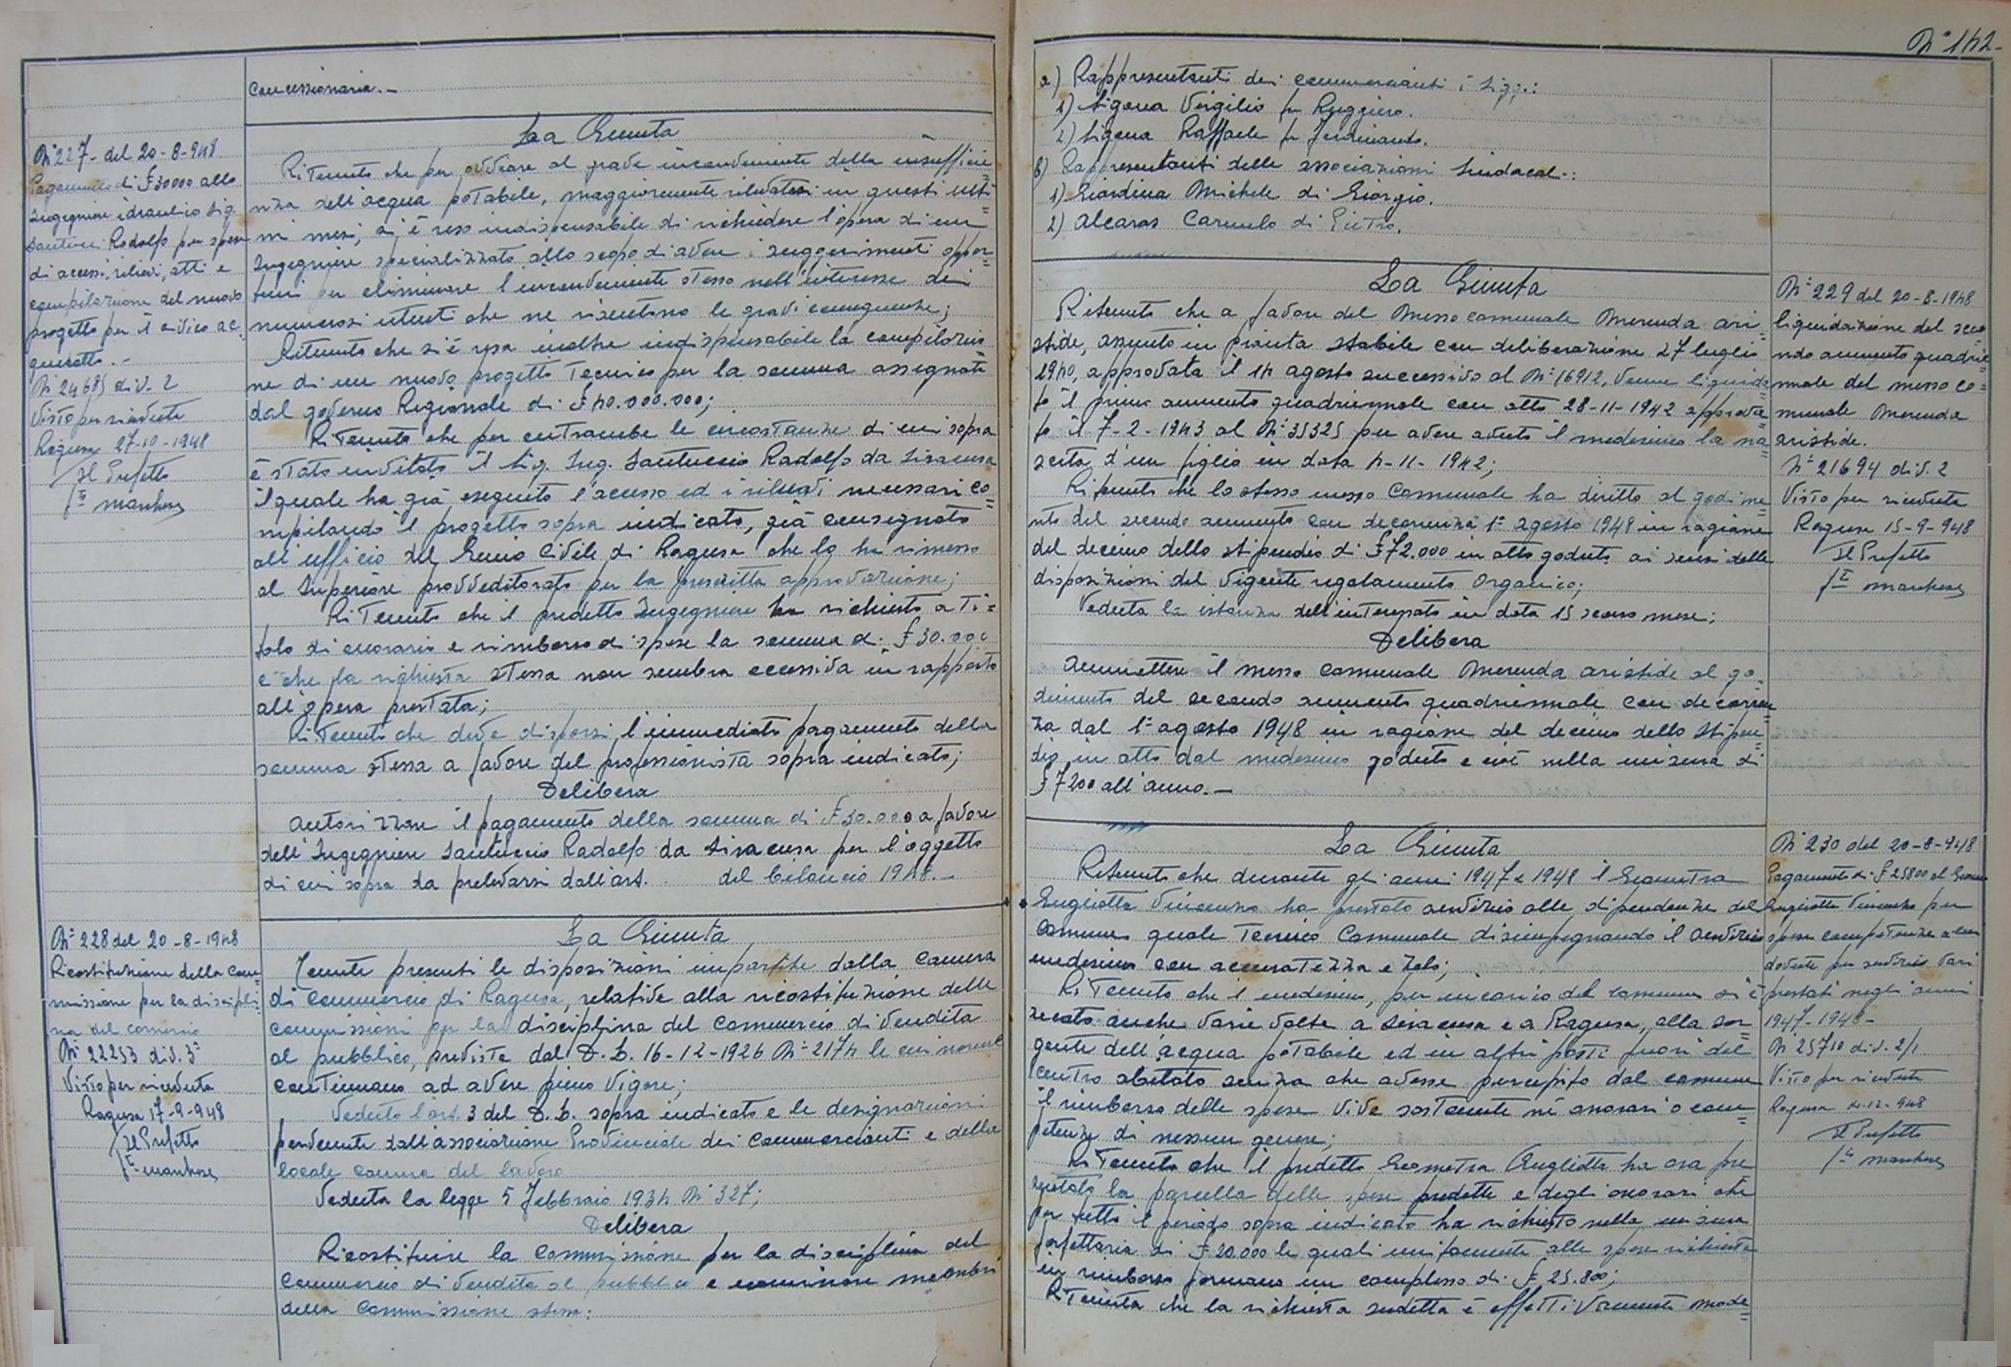 concessionaria. -
N° 227 - del 20-8-948
Pagamento di £ 30000 allo
Ingegniere idraulico Sig.
Santucci Rodolfo per spese
di accessi, rilievi, atti e
compilazione del nuovo
progetto per il civico ac
quedotto. -
N° 24685 div. 2
Visto per ricevuta
Ragusa 27-10-1948
Il Prefetto
La Giunta
Ritenuto che per ovviare al grave inconveniente della insufficie
nza dell'acqua potabile, maggiormente rilevatosi in questi ulti=
mi mesi, si è reso indispensabile di richiedere l'opera di un
Ingegniere specializzato allo scopo di avere i suggerimenti oppor=
tuni per eliminare l'inconveniente stesso nell'interesse dei
numerosi utenti che ne risentono le gravi conseguenze;
Ritenuto che si è resa inoltre indispensabile la compilazio
ne di un nuovo progetto Tecnico per la somma assegnata
dal governo Regionale di £ 40.000.000;
Ritenuto che per entrambe le circostanze di cui sopra
è stato invitato il Sig. Ing. Santuccio Radolfo da Siracusa
il quale ha già eseguito l'accesso ed i rilievi necessari co=
mpilando il progetto sopra indicato, già consegnato
all'ufficio del Genio Civile di Ragusa che lo ha rimesso
al Superiore provveditorato per la prescritta approvazione;
Ritenuto che il predetto Ingegniere ha richiesto a ti=
tolo di onorario e rimborso di spese la somma di £ 30.000
e che la richiesta stessa non sembra eccessiva in rapporto
all'opera prestata;
Ritenuto che deve disporsi l'immediato pagamento della
somma stessa a favore del professionista sopra indicato;
Delibera
Autorizzare il pagamento della somma di £ 30.000 a favore
dell'Ingegniere Santuccio Radolfo da Siracusa per l'oggetto
di cui sopra da prelevarsi dall'art. del bilancio 1948. -
N° 228 del 20-8-1948
Ricostituzione della com
missione per la discipli
na del comercio
N° 22253 div. 3ª
Visto per ricevuta
Ragusa 17-9-948
Il Prefetto
La Giunta
Tenute presenti le disposizioni impartite dalla Camera
di Commercio di Ragusa, relative alla ricostituzione delle
commissioni per la disciplina del Commercio di vendita
al pubblico, previste dal D.L. 16-12-1926 N° 2174 le cui norme
continuano ad avere pieno vigore;
Veduto l'art. 3 del D.L. sopra indicato e le designazioni
pervenute dall'associazione Provinciale dei Commercianti e della
locale camera del lavoro
Veduta la legge 5 Febbraio 1934 N° 327;
Delibera
Ricostituire la Commissione per la disciplina del
Commercio di vendita al pubblico e nominare membri
della Commissione stessa:
N° 142 -
a) Rappresentanti dei commercianti i Sigg.:
1) Ligona Virgilio fu Ruggiero.
2) Ligona Raffaele fu Ferdinando.
b) Rappresentanti delle associazioni Sindacal.:
1) Giardina Michele di Giorgio.
2) Alcaras Carmelo di Pietro.
La Giunta
Ritenuto che a favore del Messo comunale Merenda Ari
stide, assunto in pianta stabile con deliberazione 27 luglio
1940, approvata il 14 agosto successivo al N° 16912, venne liquida
to il primo aumento quadriennale con atto 28-11-1942 approva
to il 7-2-1943 al N° 35325 per avere avuto il medesimo la na=
scita d'un figlio in data 4-11-1942;
Ritenuto che lo stesso messo Comunale ha diritto al godime
nto del secondo aumento con decorrenza 1° agosto 1948 in ragione
del decimo dello stipendio di £ 72.000 in atto goduto ai sensi delle
disposizioni del vigente regolamento organico;
Veduta la istanza dell'interessato in data 15 scorso mese;
Delibera
Ammettere il messo comunale Merenda Aristide al go=
dimento del secondo aumento quadriennale con decorren
za dal 1° agosto 1948 in ragione del decimo dello stipen=
dio in atto dal medesimo goduto e cioè nella misura di
£ 7200 all'anno. -
N° 229 del 20-8-1948
liquidazione del seco
ndo aumento quadrie
nnale del messo co=
munale Merenda
Aristide.
N° 21694 div. 2
Visto per ricevuta
Ragusa 15-9-948
Il Prefetto
La Giunta
Ritenuto che durante gli anni 1947 e 1948 il Geometra
Gugliotta Vincenzo ha prestato servizio alle dipendenze del
Comune quale Tecnico Comunale disimpegnando il servizio
medesimo con accuratezza e zelo;
Ritenuto che il medesimo, per incarico del comune si è
recato anche varie volte a Siracusa e a Ragusa, alla sor
gente dell'acqua potabile ed in altri posti fuori del
centro abitato senza che avesse percepito dal comune
il rimborso delle spese vive sostenute nè onorari o com
petenze di nessun genere;
Ritenuto che il predetto Geometra Gugliotta ha ora pre
sentato la parcella delle spese predette e degli onorari che
per tutto il periodo sopra indicato ha richiesto nella misura
forfettaria di £ 20.000 le quali unitamente alle spese richieste
in rimborso formano un complesso di £ 25.800;
Ritenuta che la richiesta sudetta è effettivamente mode
N° 230 del 20-8-948
Pagamento di £ 25800 al Geom.
Gugliotta Vincenzo per
spese competenze a lui
dovute per servizi vari
prestati negli anni
1947-1948 -
N° 25710 div. 2/1
Visto per ricevuta
Il Prefetto